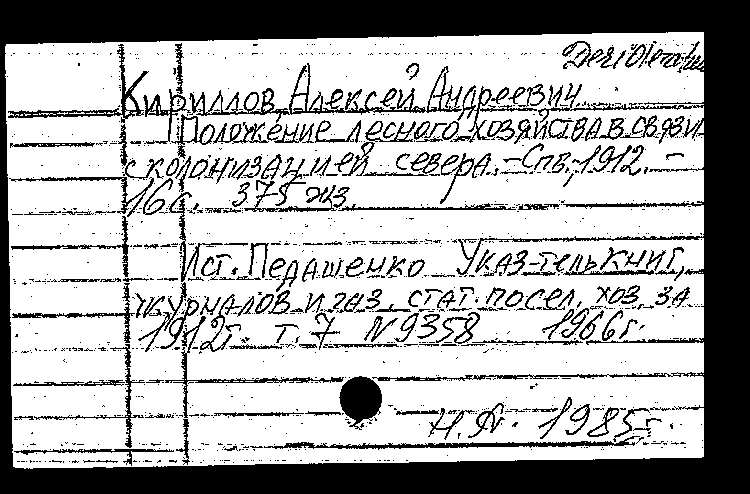 Desiderata
Кириллов, Алексей Андреевич
Положение лесного хозяйства в связи
с колонизацией севера. - Спб., 1912. -
16 с. 375 экз.
Ист. Педашенко Указ-тель книг,
журналов и газ. стат. по сел. хоз. за
1912 г. т. 7 № 9358 1966 г.
1985 г.